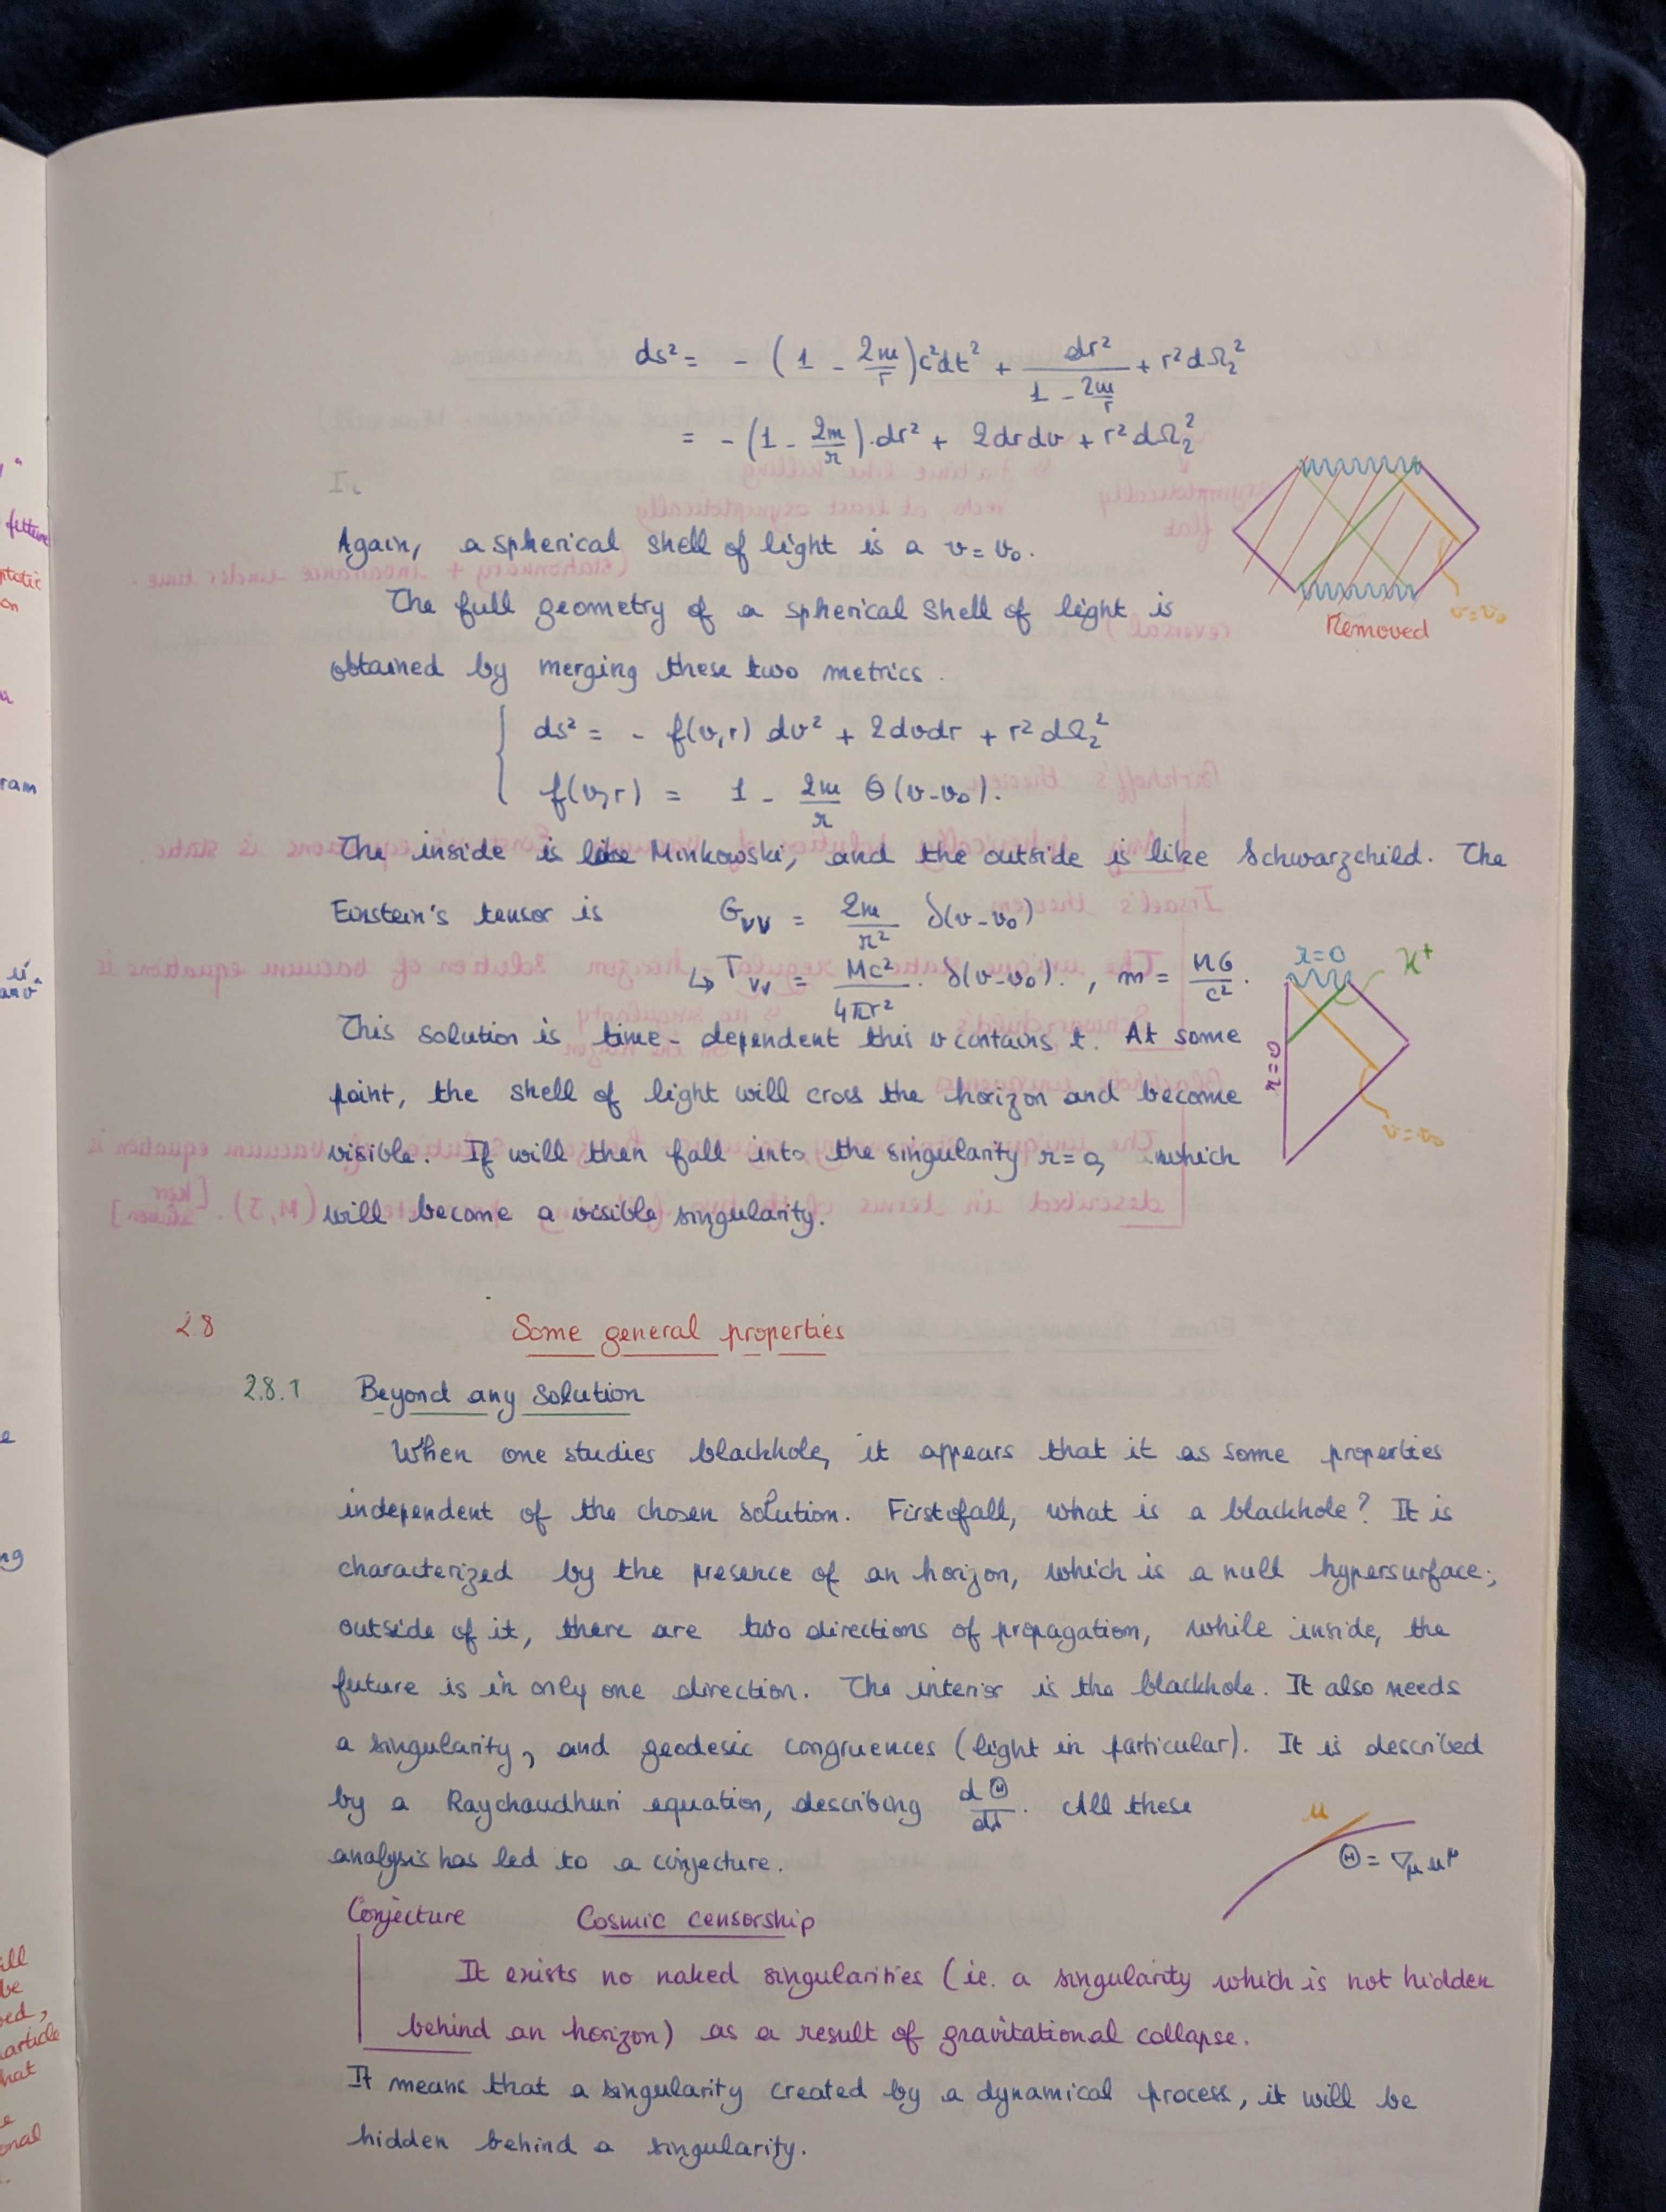 ds² = - (1 - 2m/r) c²dt² + dr²/(1 - 2m/r) + r²dΩ₂²
= - (1 - 2m/r) · dr² + 2drdv + r²dΩ₂²
I.
Again, a spherical shell of light is a v = v₀.
The full geometry of a spherical shell of light is
obtained by merging these two metrics.
Removed
v=v₀
ds² = - f(v,r) dv² + 2dvdr + r²dΩ₂²
f(v,r) = 1 - 2m/r Θ(v-v₀).
The inside is like Minkowski, and the outside is like Schwarzchild. The
Einstein's tensor is G_vv = 2m/r² δ(v-v₀)
↳ T_vv = Mc²/4πr² · δ(v-v₀). , m = MG/c².
r=0
H⁺
r=0
v=v₀
This solution is time-dependent this v contains t. At some
point, the shell of light will cross the horizon and become
visible. It will then fall into the singularity r=0, which
will become a visible singularity.
2.8 Some general properties
2.8.1 Beyond any solution
When one studies blackhole, it appears that it as some properties
independent of the chosen solution. First of all, what is a blackhole? It is
characterized by the presence of an horizon, which is a null hypersurface;
outside of it, there are two directions of propagation, while inside, the
future is in only one direction. The interior is the blackhole. It also needs
a singularity, and geodesic congruences (light in particular). It is described
by a Raychaudhuri equation, describing dΘ/dτ. All these
analysis has led to a conjecture.
u
Θ = ∇_μ u^μ
Conjecture Cosmic censorship
It exists no naked singularities (ie. a singularity which is not hidden
behind an horizon) as a result of gravitational collapse.
It means that a singularity created by a dynamical process, it will be
hidden behind a singularity.